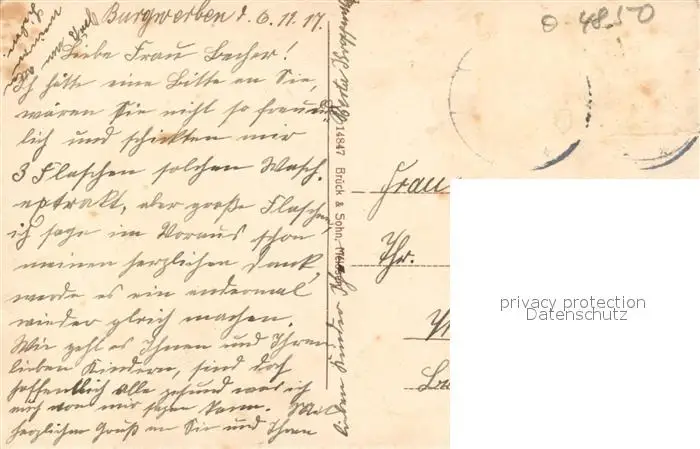 Burgwerben d. 6. 11. 17.
Liebe Frau Becher!
Ich hätte eine Bitte an Sie,
wären Sie nicht so freund-
lich und schickten mir
3 Flaschen solchen Wasch-
extrakt, aber große Flaschen,
ich sage im Voraus schon
meinen herzlichen Dank,
werde es ein andermal
wieder gleich machen.
Wie geht es Ihnen und Ihren
lieben Kindern, sind doch
hoffentlich alle gesund was ich
auch von mir sagen kann.
herzlichen Gruß an Sie und Ihren
lieben Kinder
14847 Brück & Sohn,
4850
Frau
Thr.
privacy protection
Datenschutz